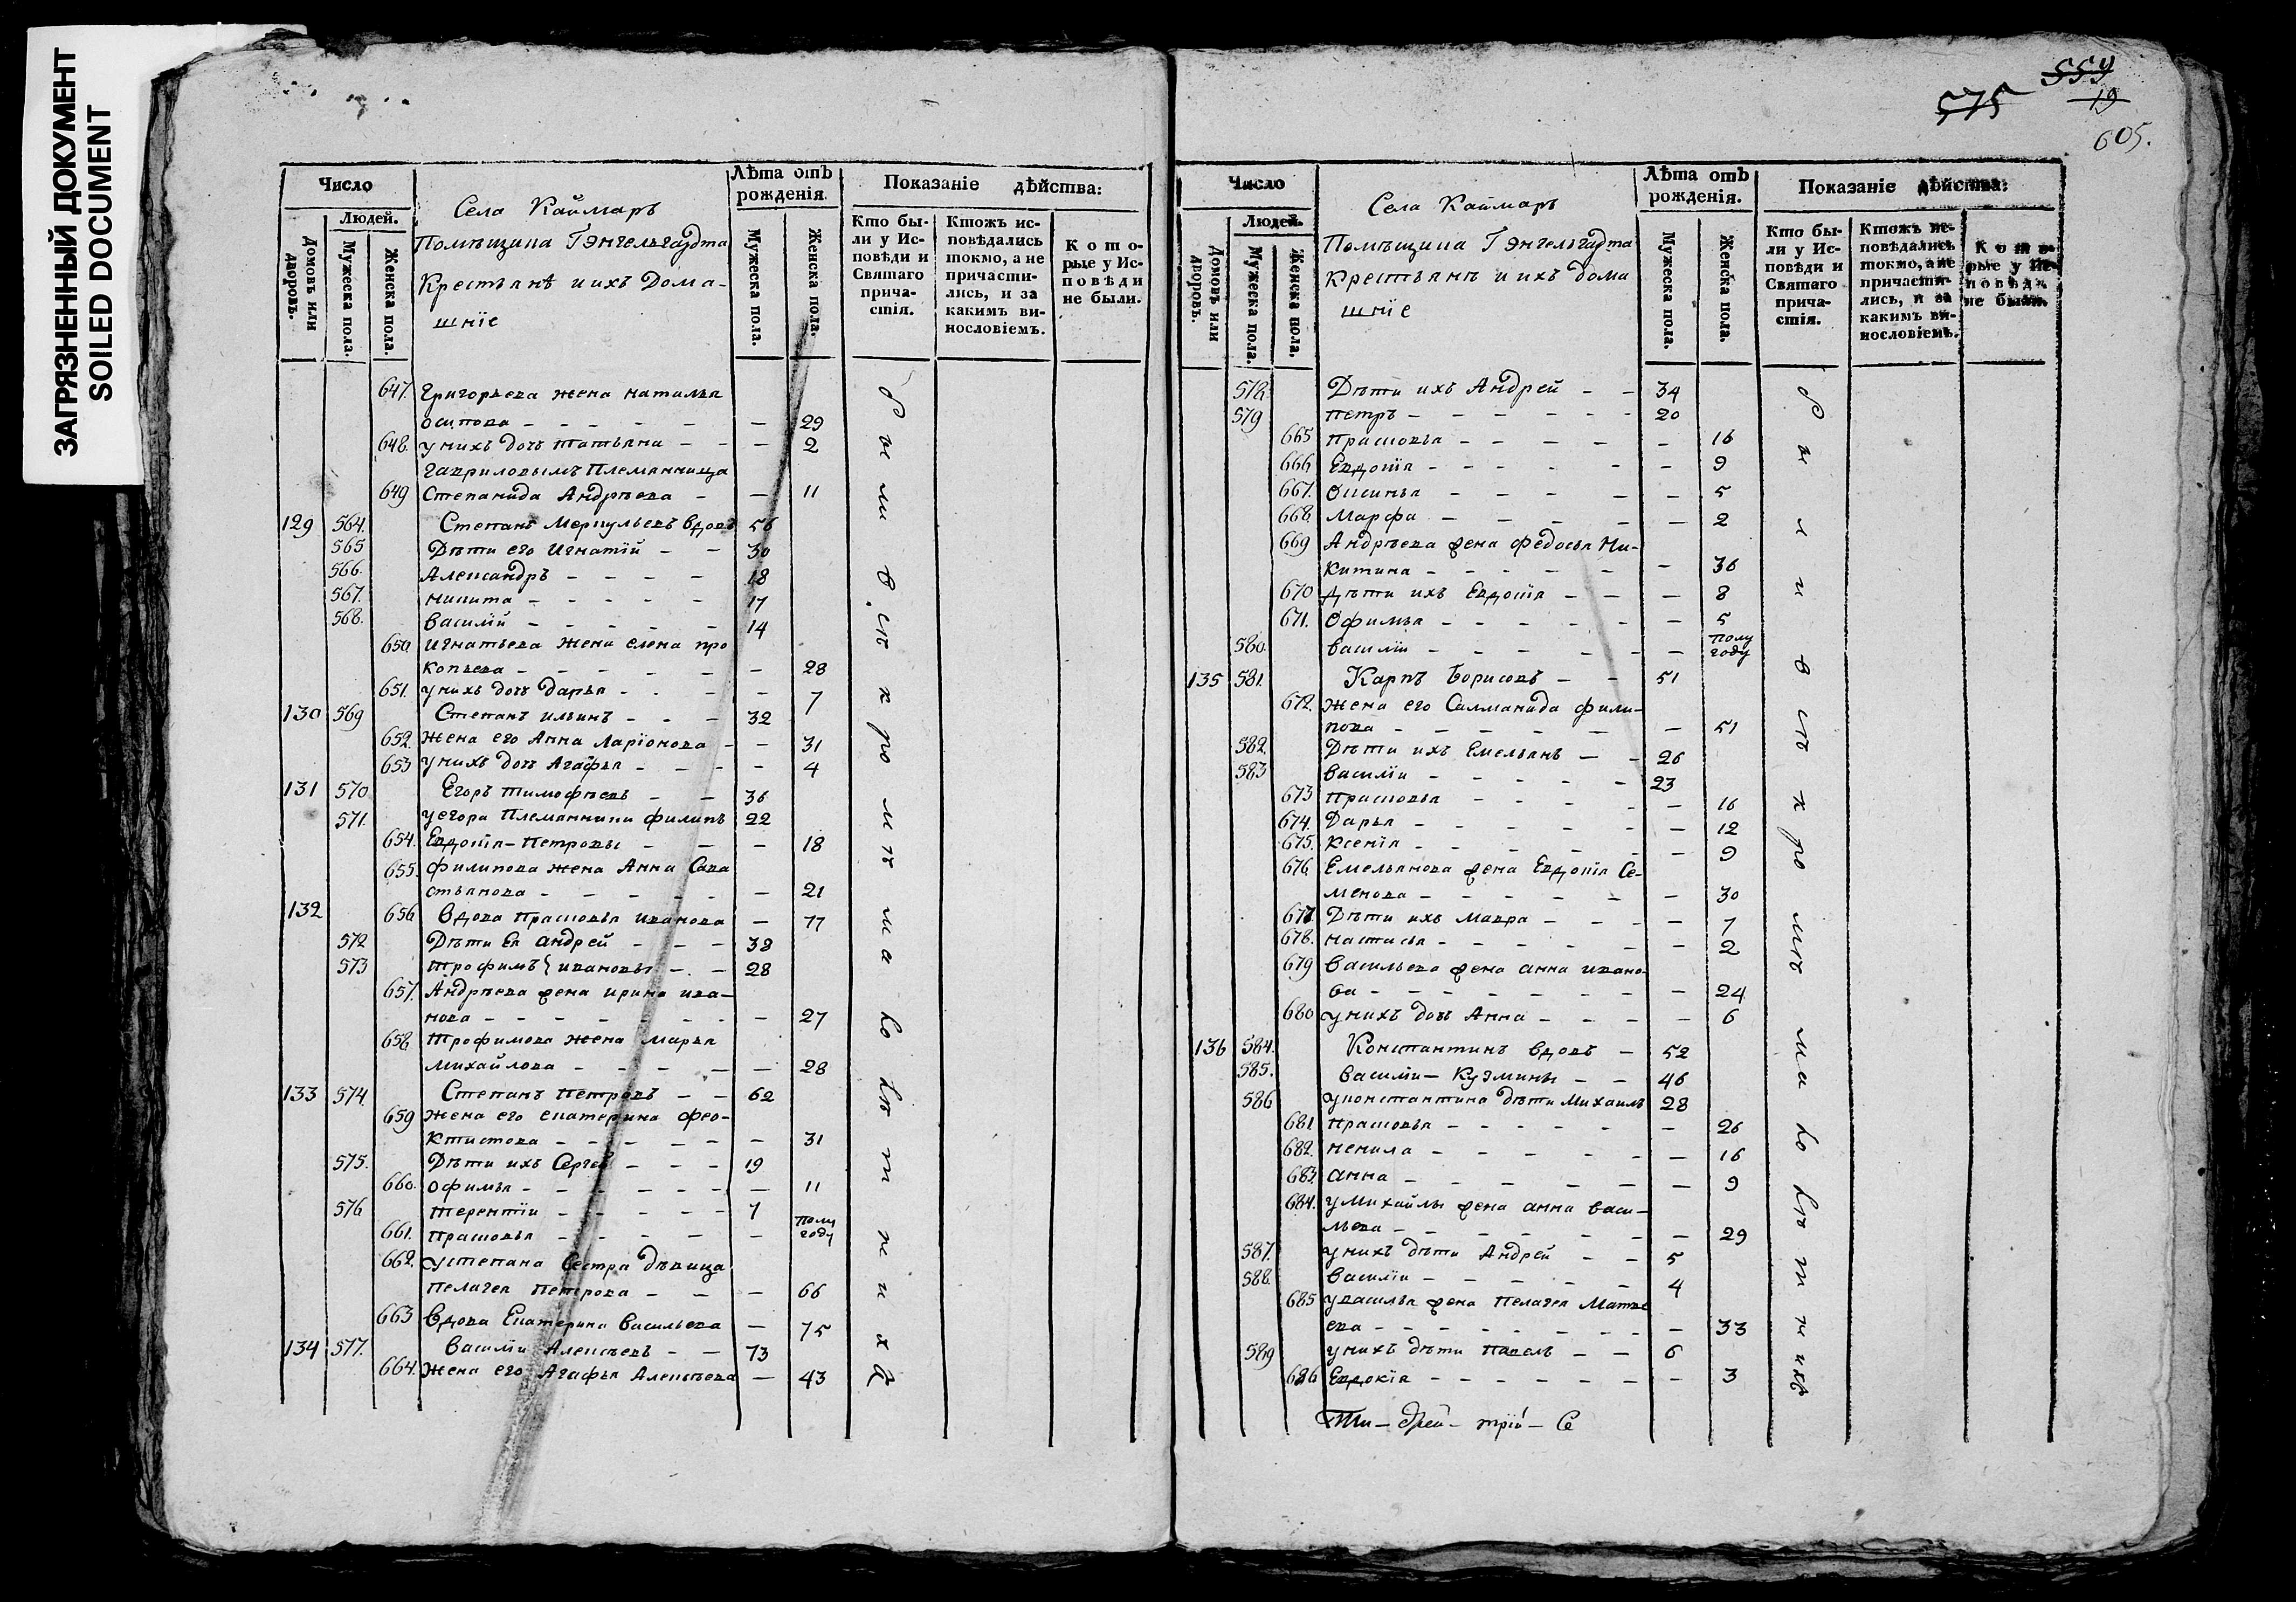 ЗАГРЯЗНЕННЫЙ ДОКУМЕНТ
SOILED DOCUMENT
Число
Людей.
Домовъ или дворовъ.
Мужеска пола.
Женска пола.
Села Каймаръ
Помѣщика Гэнгельгардта
Крестьянѣ и ихъ Дома-
шніе
Лѣта отъ рожденія.
Мужеска пола.
Женска пола.
Показаніе дѣйства:
Кто бы-
ли у Ис-
повѣди и
Святаго
прича-
стія.
Ктожъ ис-
повѣдались
токмо, а не
причасти-
лись, и за
какимъ ви-
нословіемъ.
Кото-
рые у Ис-
повѣди
не были.
647. Григорьева жена наталья
осипова — 29
648. у нихъ дочь татьяна — 2
гавриловымъ племянница
649 Степанида Андрѣева — 11
129 564. Степанъ Меркульевъ вдовъ 56
565 Дѣти его Игнатій 30
566. Александръ 18
567. никита 17
568. василій 14
650. игнатьева жена елена про
копьева — 28
651. у нихъ дочь дарья — 7
130 569 Степанъ ильинъ 32
652. жена его Анна Ларіонова — 31
653 у нихъ дочь Агафья — 4
131 570 Егоръ тимофѣевъ 36
571. у егора племянники филипъ 22
654. Евдокія — петровы — 18
655. филипова жена Анна Сева
стьянова — 21
132 656 вдова прасковья иванова — 77
572 Дѣти ея андрей 38
573 трофимъ} ивановы 28
657. Андрѣева жена ирина ива-
нова — 27
658 трофимова жена марья
михайлова — 28
133 574 Степанъ петровъ 62
659 жена его екатерина фео-
ктистова — 31
575. Дѣти ихъ Сергей 19
660. офимья — 11
576 терентіи 7
661. прасковья — полу
году
662. у степана Сестра дѣвица
пелагея петрова — 66
663 вдова Екатерина васильева — 75
134 577. василіи Алексѣевъ 73
664. жена его Агафья Алексѣева — 43
559
19
575
605.
Число
Людей.
Домовъ или дворовъ.
Мужеска пола.
Женска пола.
Села Каймаръ
Помѣщика Гэнгельгадта
Крестьянѣ и ихъ дома
шніе
Лѣта отъ рожденія.
Мужеска пола.
Женска пола.
Показаніе дѣйства:
Кто бы-
ли у Ис-
повѣди и
Святаго
прича-
стія.
Ктожъ ис-
повѣдались
токмо, а не
причасти-
лись, и за
какимъ ви-
нословіемъ.
Кото-
рые у Ис-
повѣди
не были.
578. Дѣти ихъ Андрей 34
579 петръ 20
665 прасковья — 16
666 Евдокія — 9
667. Оксинья — 5
668. Марфа — 2
669 Андрѣева жена федосья Ни-
китина — 36
670 дѣти ихъ Евдокія — 8
671. Офимья — 5
580. василіи — полу
году
135 581. Карпъ Борисовъ 51
672. жена его Салманида фили-
пова — 51
582. Дѣти ихъ Емельянъ 26
583 василіи 23
673 прасковья — 16
674. Дарья — 12
675. ксенія — 9
676 Емельянова жена Евдокія Се-
менова — 30
677. Дѣти ихъ Мавра — 7
678. настасья — 2
679 васильева жена анна ивано-
ва — 24
680 у нихъ дочь Анна — 6
136 584. Константинъ вдовъ 52
585. василіи — Кузмины 46
586 у константина дѣти михаилъ 28
681 прасковья — 26
682. ненила — 16
683. анна — 9
684. у михайлы жена анна васи-
льева — 29
587. у нихъ дѣти Андрей 5
588. василіи 4
685 у василья жена пелагея Матве
ева — 33
589 у нихъ дѣти павелъ 6
686 Евдокія — 3